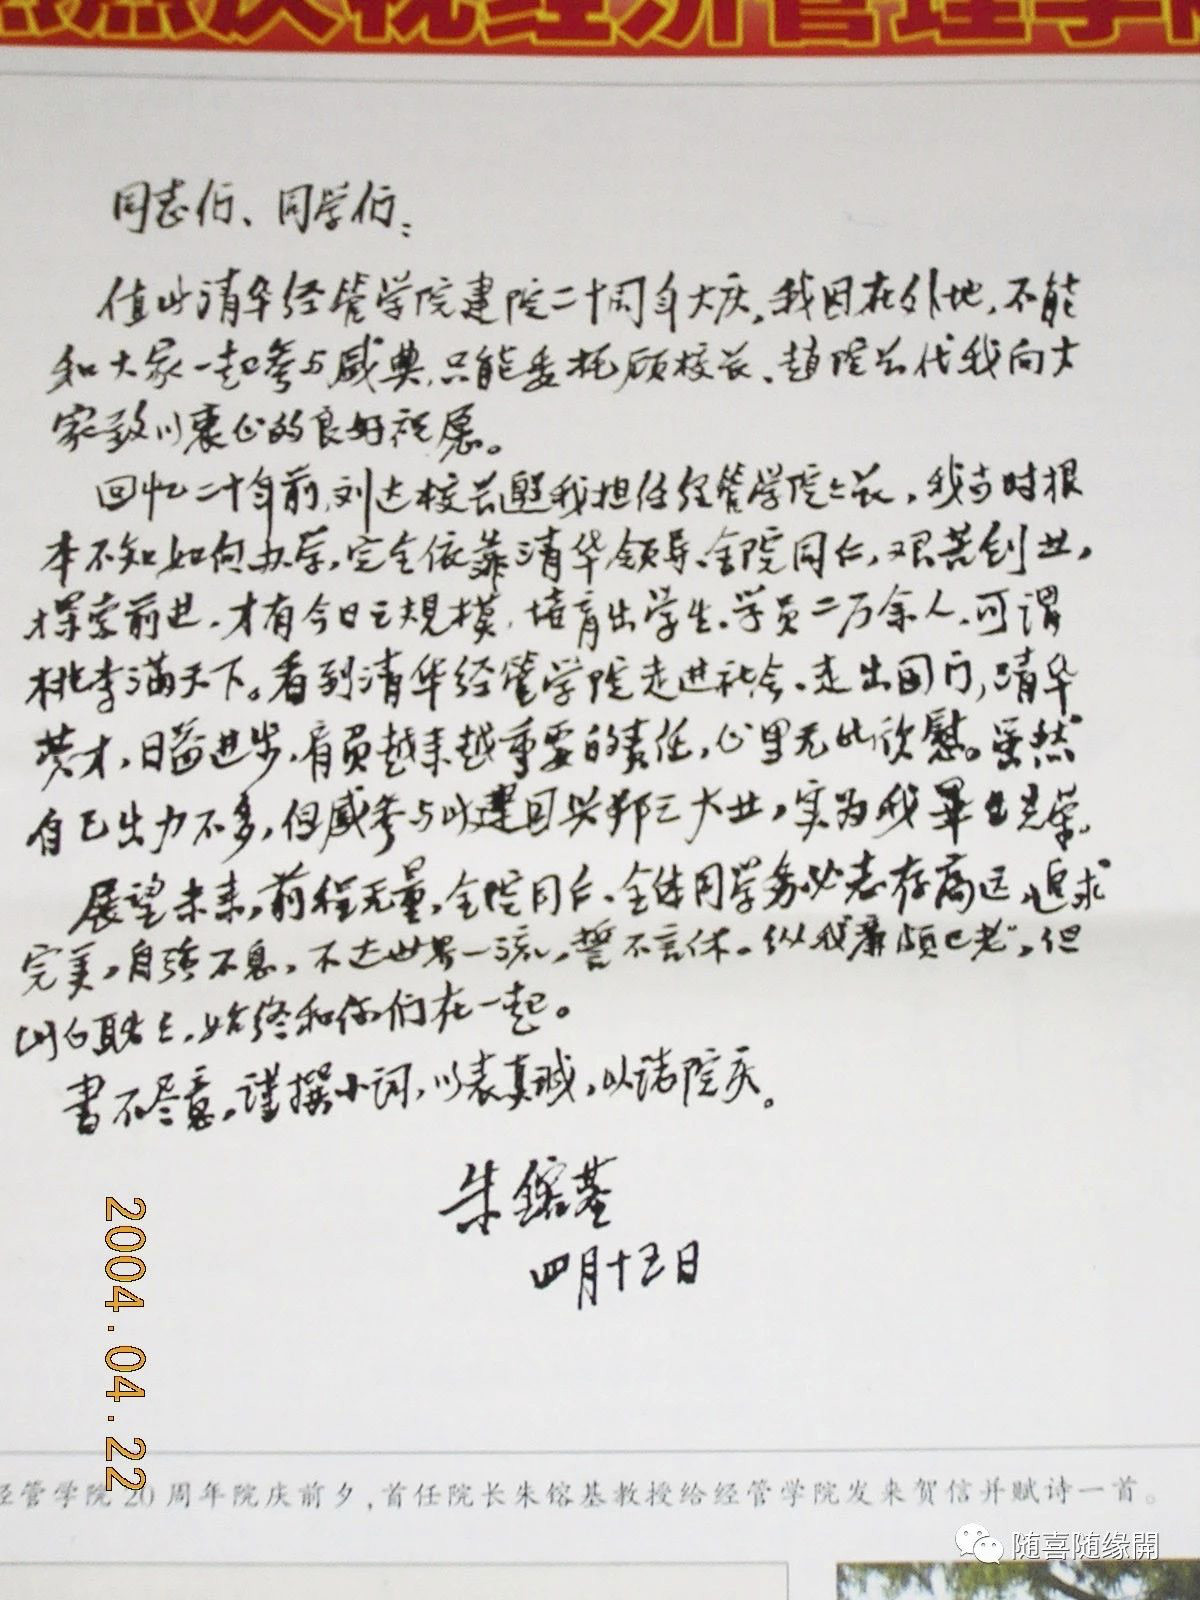 热烈庆祝经济管理学院
同志们、同学们：
值此清华经管学院建院二十周年大庆，我因在外地，不能
和大家一起参与盛典，只能委托顾校长、赵院长代我向大
家致以衷心的良好祝愿。
回忆二十年前，刘达校长邀我担任经管学院院长，我当时根
本不知如何办学，完全依靠清华领导、全院同仁，艰苦创业，
探索前进，才有今日之规模，培育出学生、学员二万余人，可谓
桃李满天下。看到清华经管学院走进社会、走出国门，清华
英才，日益进步，肩负越来越重要的责任，心里无比欣慰。虽然
自己出力不多，但感参与此建国兴邦之大业，实为我毕生光荣。
展望未来，前程无量，全院同仁、全体同学务必志存高远，追求
完美，自强不息，不达世界一流，誓不言休。纵我"廉颇已老"，但
心，始终和你们在一起。
书不尽意，谨撰小词，以表真诚，以志院庆。
朱镕基
四月十五日
2004.04.22
经管学院20周年院庆前夕，首任院长朱镕基教授给经管学院发来贺信并赋诗一首。
随喜随缘開